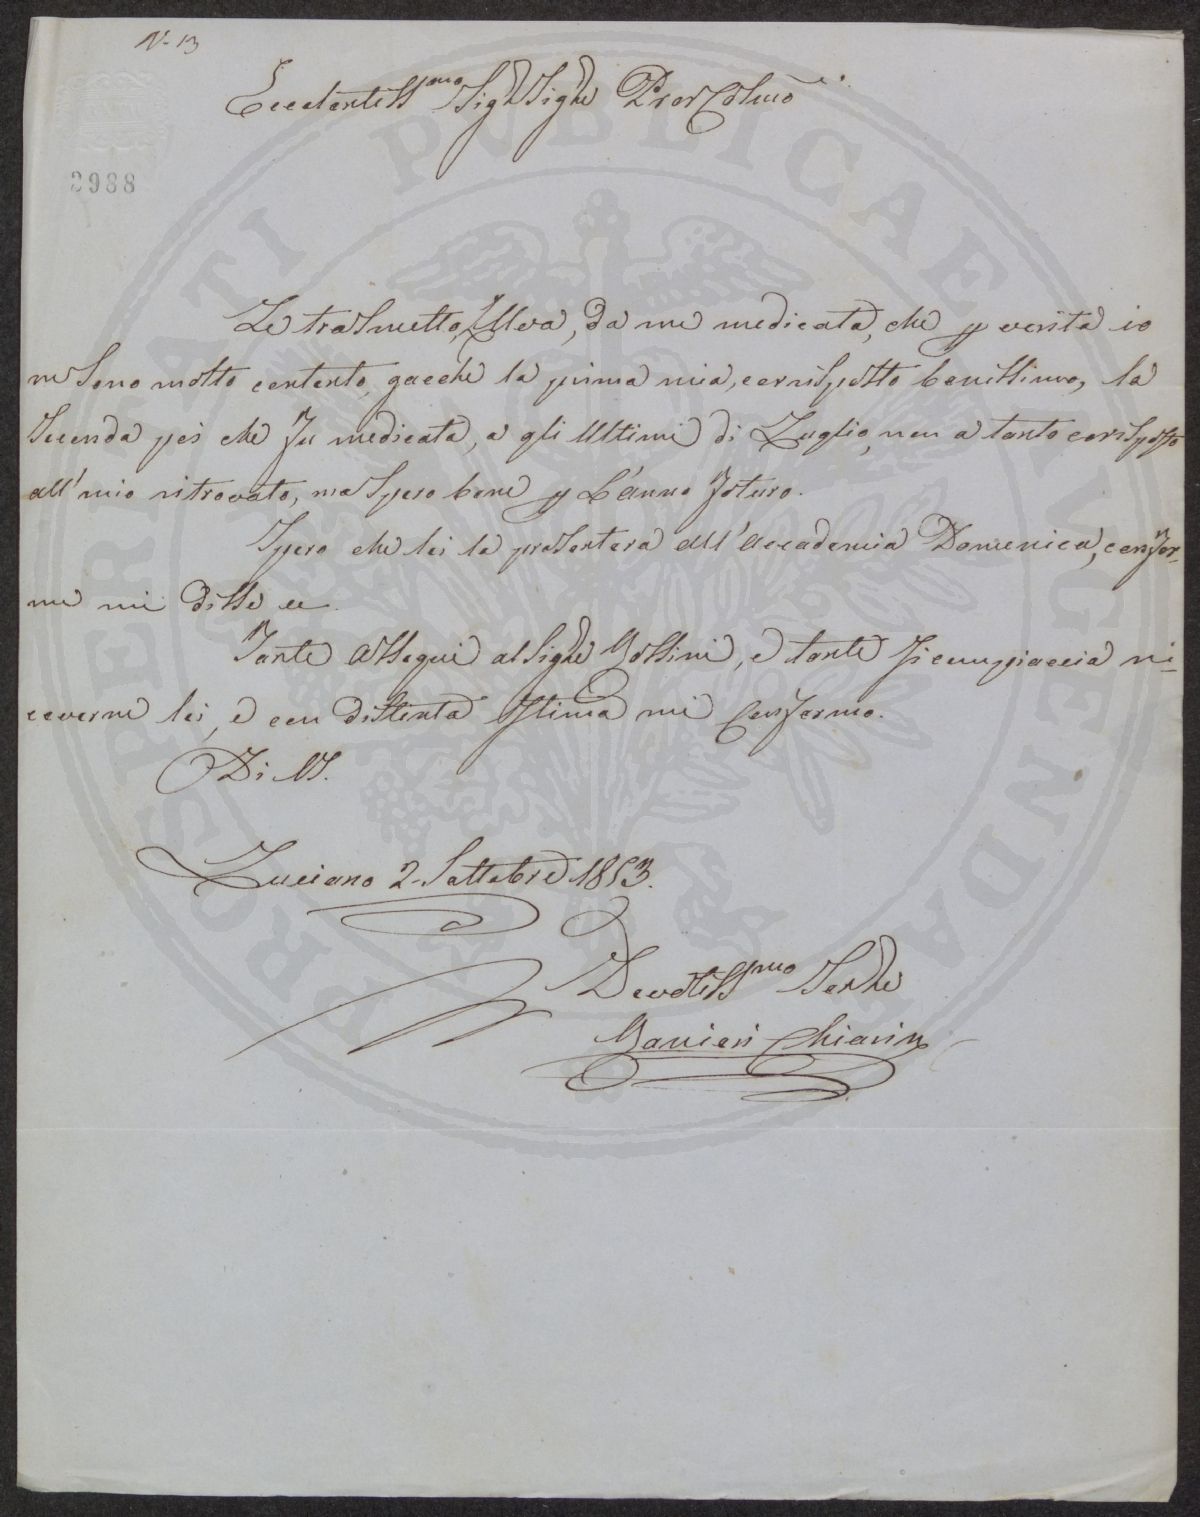 N. 13
Eccelentiss.mo Sigr Sigre Pror Colmo
2988
Le trasmetto, l'Uva, da me medicata, che p verità io
ne sono molto contento, gacche la prima mia, corrispotto benissimo, la
secenda poi che fu medicata, a gli Ultimi di Luglio, non a tanto corisposto
all'mio ritrovato, ma spero bene p L'anno foturo.
Spero che lei la presentera all'Accademia Domenica, confor-
me mi disse ec
Tante Ossequi al Sigre Gossini, e tante si compiaccia ri-
ceverne lei, e con distinta stima mi Confermo.
Di VS.
Luciano 2. Settebre 1853.
Devotiss.mo Serre
Ganieri Chiarin
PROSPERITATI PUBLICAE AUGENDAE